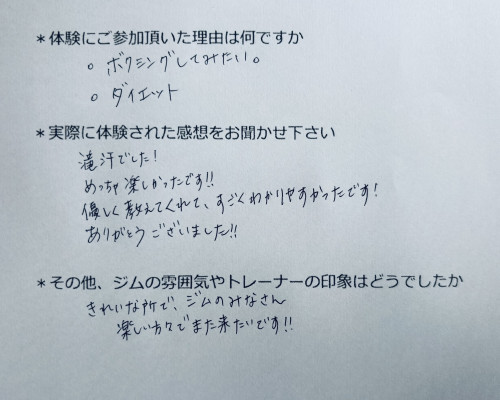 *体験にご参加頂いた理由は何ですか
○ ボクシングしてみたい。
○ ダイエット
*実際に体験された感想をお聞かせ下さい
滝汗でした!
めっちゃ楽しかったです!!
優しく教えてくれて、すごくわかりやすかったです!
ありがとうございました!!
*その他、ジムの雰囲気やトレーナーの印象はどうでしたか
きれいな所で、ジムのみなさん
楽しい方々でまた来たいです!!